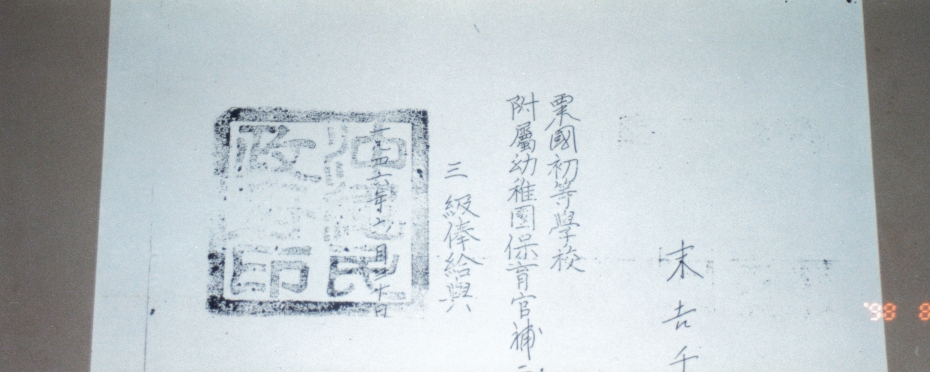 末吉千
粟國初等學校
附屬幼稚園保育官補
三級俸給與
一九四六年六月二十日
沖繩民政府印
'98 8